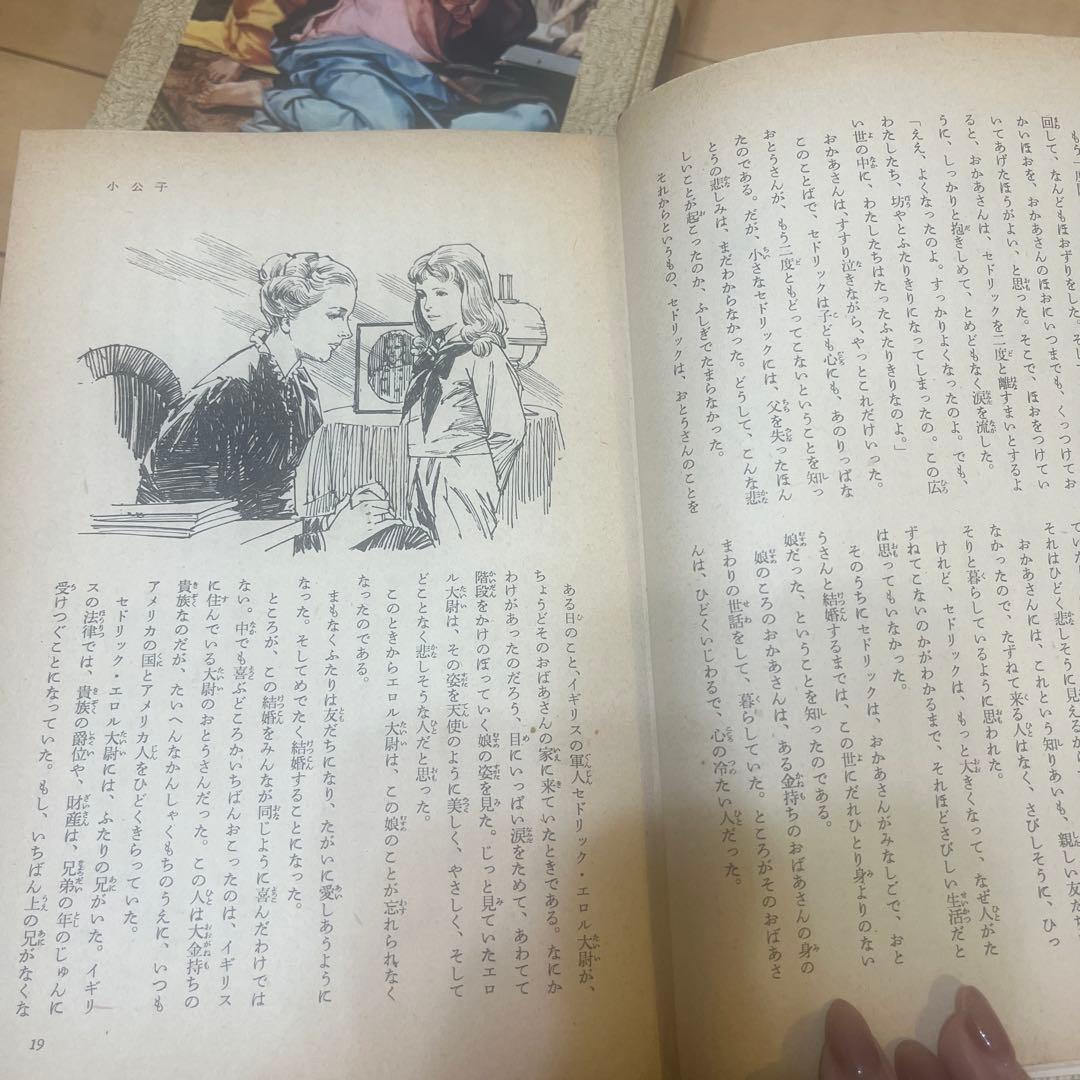 回して、なんどもほおずりをした。そし
かいほおを、おかあさんのほおにいつまでも、くっつけてお
いてあげたほうがよい、と思った。そこで、ほおをつけてい
ると、おかあさんは、セドリックを二度と離すまいとするよ
うに、しっかりと抱きしめて、とめどもなく涙を流した。
「ええ、よくなったのよ。すっかりよくなったのよ。でも、
わたしたち、坊やとふたりきりになってしまったの。この広
い世の中に、わたしたちはたったふたりきりなのよ。」
おかあさんは、すすり泣きながら、やっとこれだけいった。
このことばで、セドリックは子ども心にも、あのりっぱな
おとうさんが、もう二度ともどってこないということを知っ
たのである。だが、小さなセドリックには、父を失ったほん
とうの悲しみは、まだわからなかった。どうして、こんな悲
しいことが起こったのか、ふしぎでたまらなかった。
それからというもの、セドリックは、おとうさんのことを
それはひどく悲しそうに見え
おかあさんには、これという知りあいも、親しい友だ
なかったので、たずねて来る人はなく、さびしそうに、ひっ
そりと暮らしているように思われた。
けれど、セドリックは、もっと大きくなって、なぜ人がた
ずねてこないのかがわかるまで、それほどさびしい生活だと
は思ってもいなかった。
そのうちにセドリックは、おかあさんがみなしごで、おと
うさんと結婚するまでは、この世にだれひとり身よりのない
娘だった、ということを知ったのである。
娘のころのおかあさんは、ある金持ちのおばあさんの身の
まわりの世話をして、暮らしていた。ところがそのおばあさ
んは、ひどくいじわるで、心の冷たい人だった。
小公子
ある日のこと、イギリスの軍人セドリック・エロル大尉が、
ちょうどそのおばあさんの家に来ていたときである。なにか
わけがあったのだろう、目にいっぱい涙をためて、あわてて
階段をかけのぼっていく娘の姿を見た。じっと見ていたエロ
ル大尉は、その姿を天使のように美しく、やさしく、そして
どことなく悲しそうな人だと思った。
このときからエロル大尉は、この娘のことが忘れられなく
なったのである。
まもなくふたりは友だちになり、たがいに愛しあうように
なった。そしてめでたく結婚することになった。
ところが、この結婚をみんなが同じように喜んだわけでは
ない。中でも喜ぶどころかいちばんおこったのは、イギリス
に住んでいる大尉のおとうさんだった。この人は大金持ちの
貴族なのだが、たいへんなかんしゃくもちのうえに、いつも
アメリカの国とアメリカ人をひどくきらっていた。
セドリック・エロル大尉には、ふたりの兄がいた。イギリ
スの法律では、貴族の爵位や、財産は、兄弟の年のじゅんに
受けつぐことになっていた。もし、いちばん上の兄がなくな
19